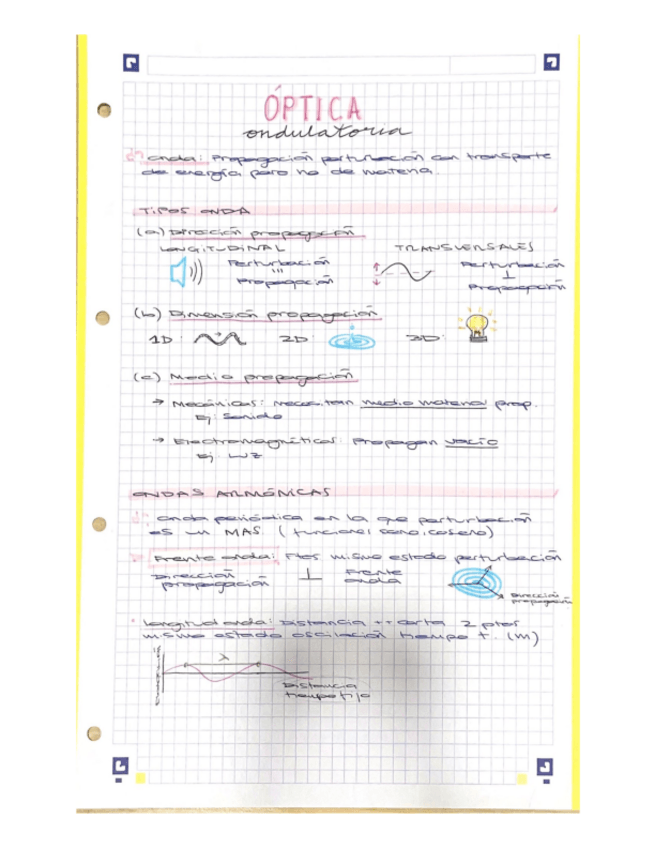 ÓPTICA
ondulatoria
onda: Propagación perturbación con transporte
de energía pero no de materia.
TIPOS ONDA
(a) Dirección propagación
LONGITUDINAL
TRANSVERSALES
Perturbación
Propagación
Perturbación
⊥
Propagación
(b) Dimensión propagación
1D:
2D:
3D:
(c) Medio propagación
→ Mecánicas: necesitan medio material prop.
Ej: Sonido
→ Electromagnéticas: Propagan vacío
Ej: LUZ
ONDAS ARMÓNICAS
onda periódica en la que perturbación
es un MAS (funciones seno, coseno)
Frente onda: Ptos mismo estado perturbación
Dirección propagación ⊥ Frente onda
Dirección
propagación
Longitud onda: Distancia ++ corta 2 ptos
mismo estado oscilación tiempo t. (m)
λ
Distancia
tiempo fijo